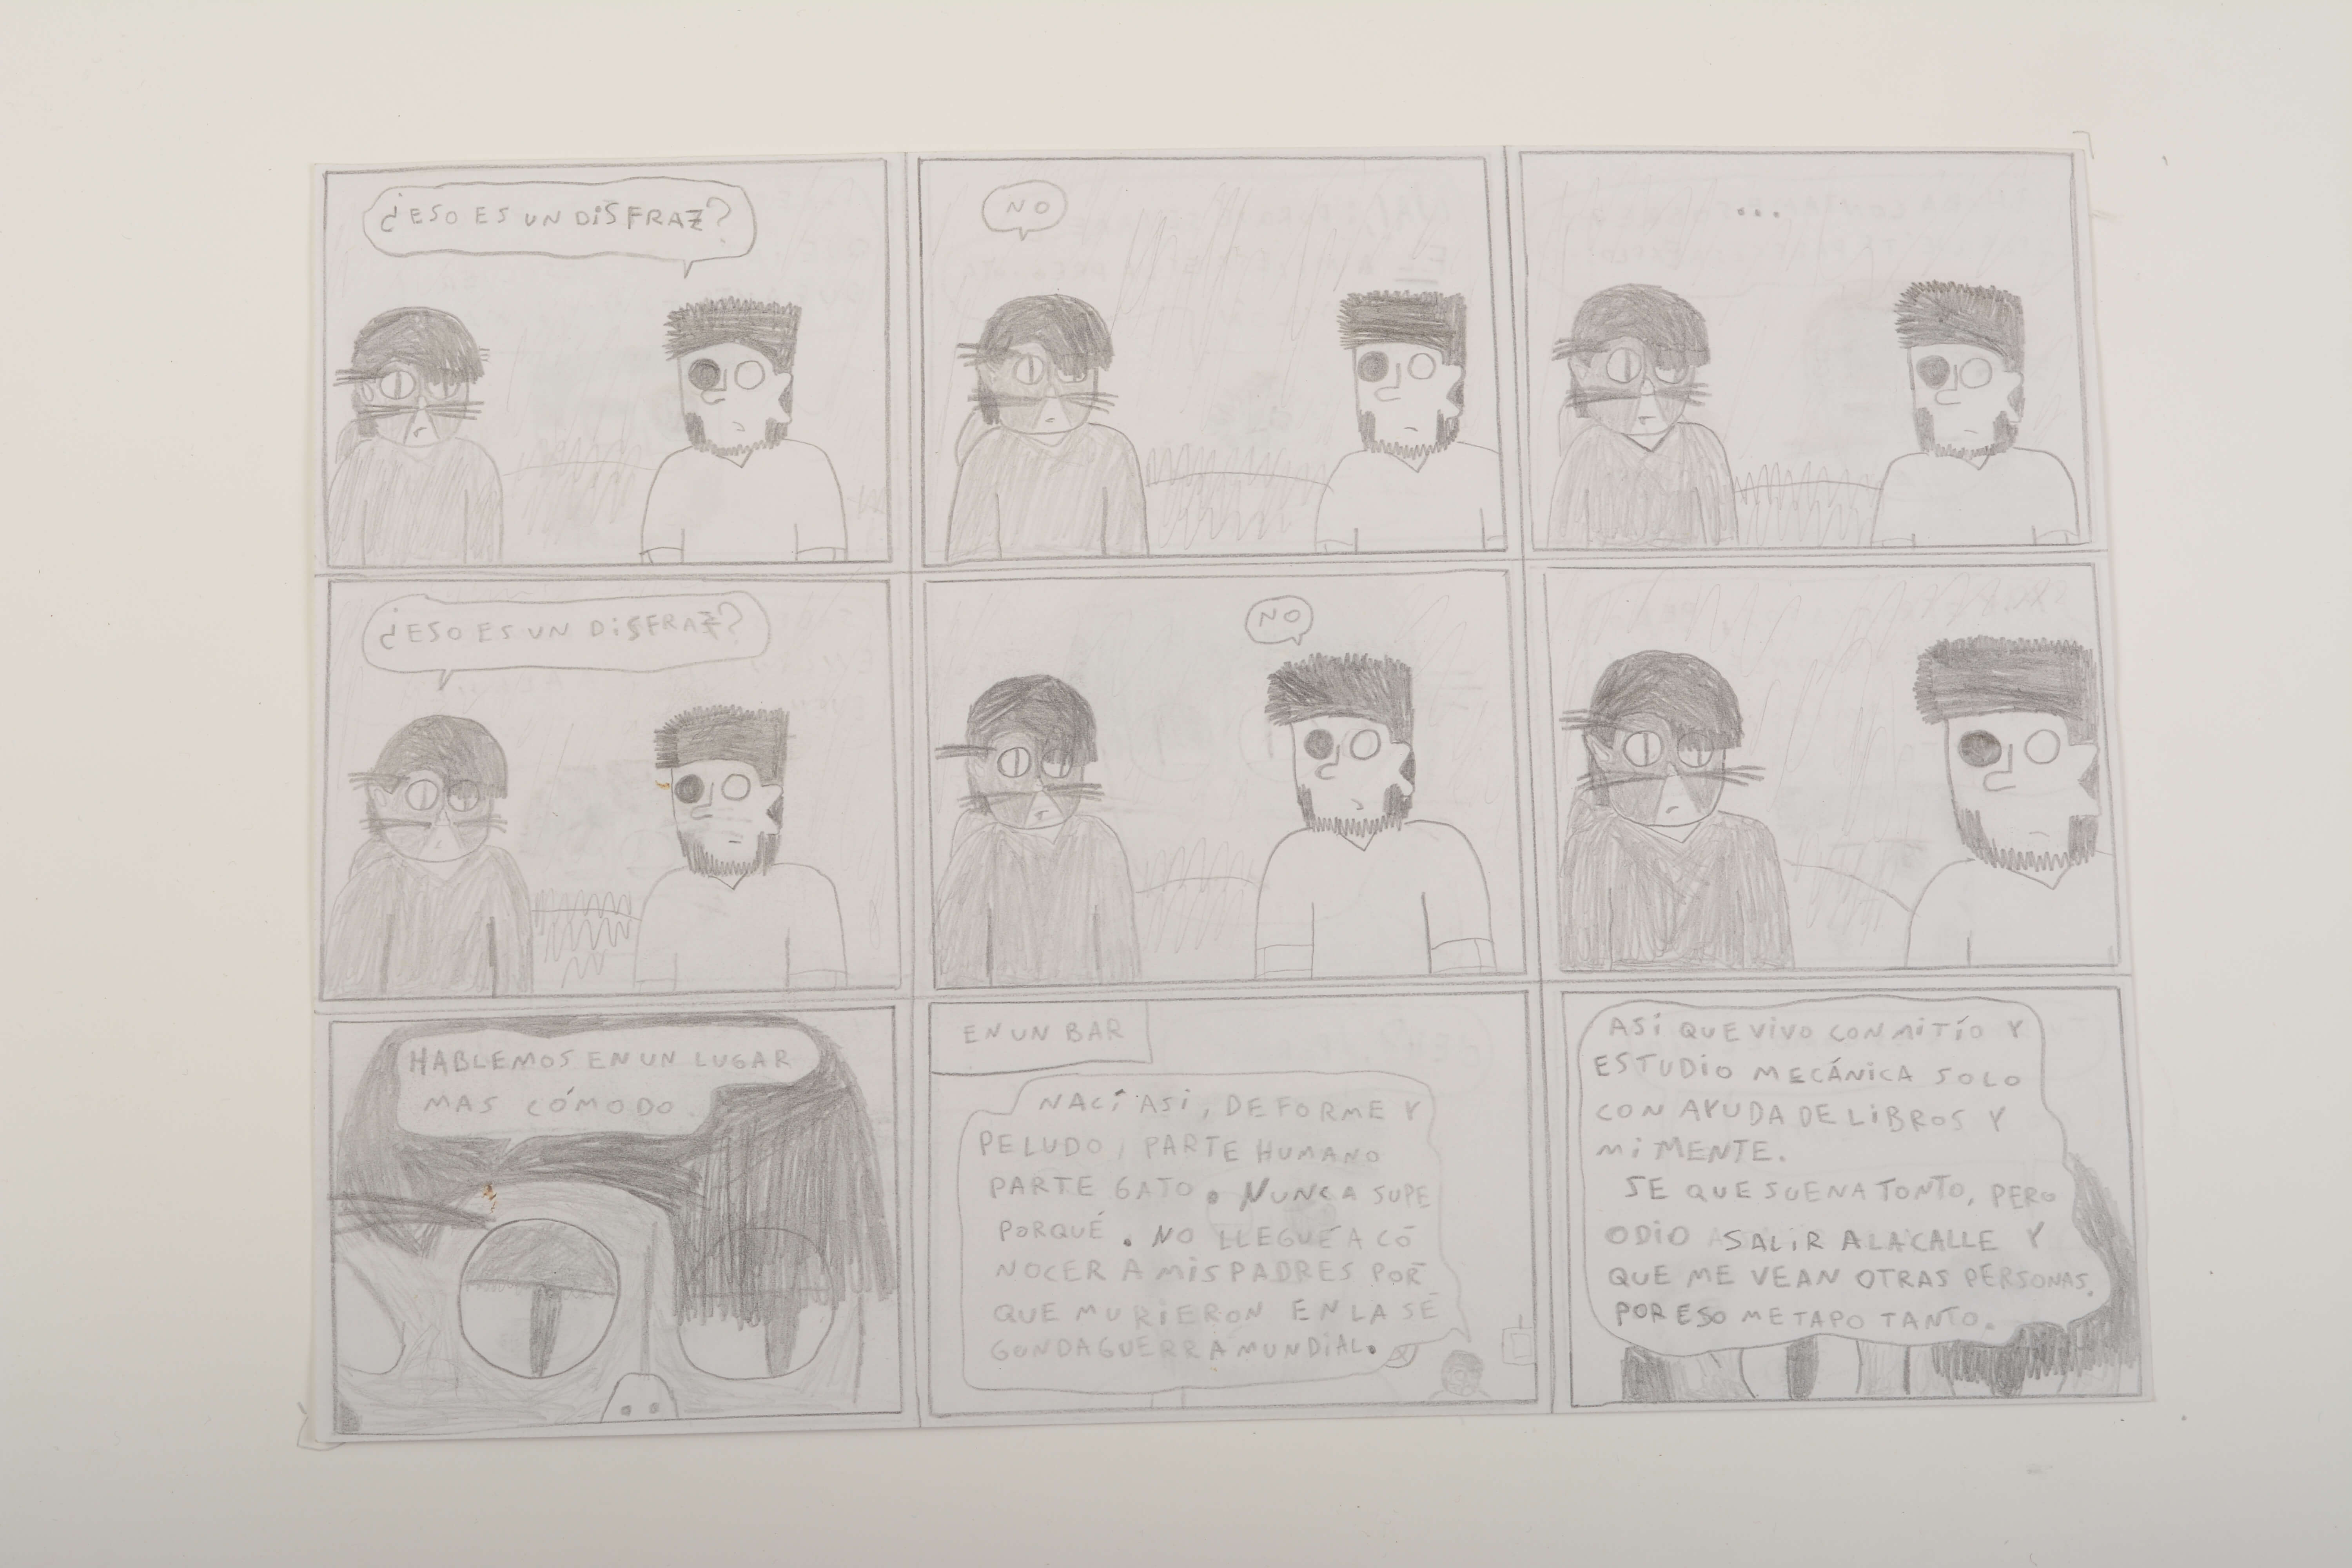 ¿ESO ES UN DISFRAZ?
NO
...
¿ESO ES UN DISFRAZ?
NO
HABLEMOS EN UN LUGAR
MAS CÓMODO.
EN UN BAR
NACÍ ASI, DEFORME Y
PELUDO, PARTE HUMANO
PARTE GATO. NUNCA SUPE
PORQUÉ. NO LLEGUÉ A CO
NOCER A MIS PADRES POR
QUE MURIERON EN LA SE
GUNDA GUERRA MUNDIAL.
ASÍ QUE VIVO CON MI TÍO Y
ESTUDIO MECÁNICA SOLO
CON AYUDA DE LIBROS Y
MI MENTE.
SE QUE SUENA TONTO, PERO
ODIO SALIR A LA CALLE Y
QUE ME VEAN OTRAS PERSONAS.
POR ESO ME TAPO TANTO.